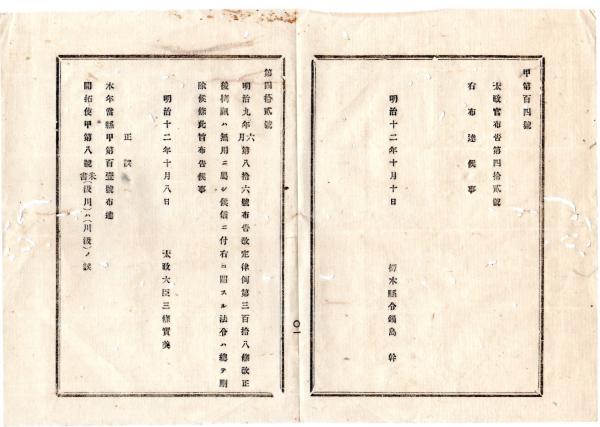 甲第百四號
太政官布告第四拾貳號
右布達候事
明治十二年十月十日 栃木縣令鍋島 幹
〇一
第四拾貳號
明治九年六月第八拾六號布告改定律例第三百拾八條改正
後拷訊ハ無用ニ屬シ候儀ニ付右ニ關スル法令ハ總テ刪
除候條此旨布告候事
明治十二年十月八日 太政大臣三條實美
正誤
本年當縣甲第百壹號布達
開拓使甲第八號朱書(汲川)ハ(川汲)ノ誤